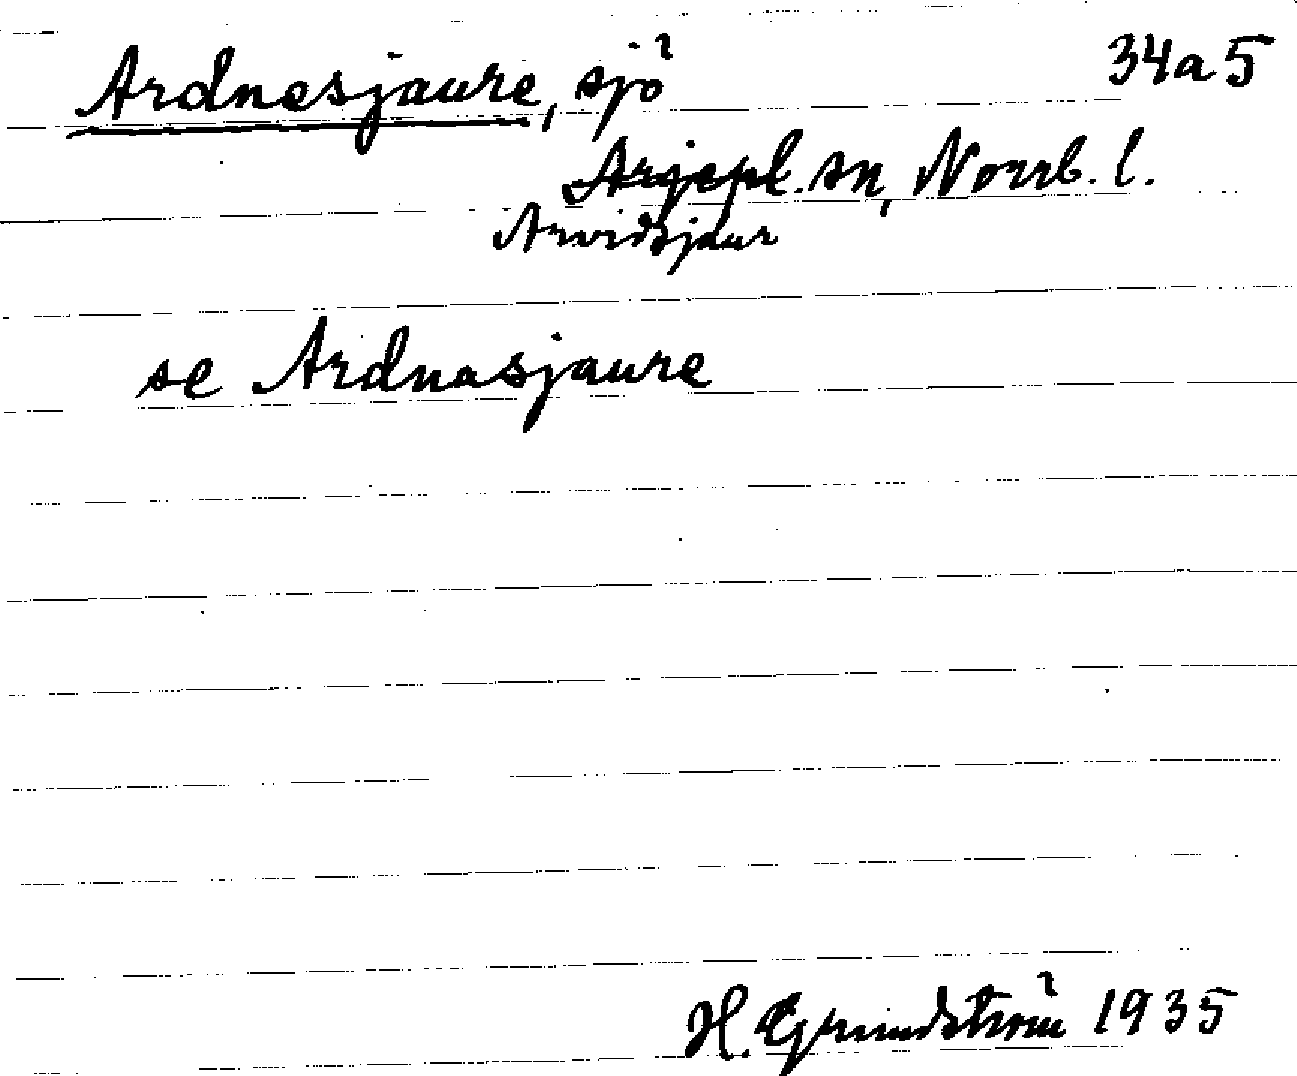 Ardnesjaure, sjö 34a5
Arjepl. sn, Norrb. l.
Arvidsjaur
se Ardnasjaure
H. Grundström 1935